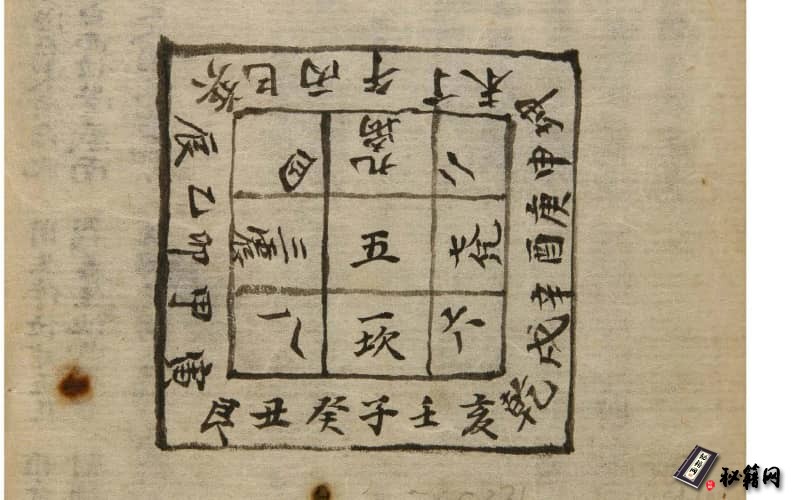 巳丙午丁未
坤申庚酉辛戌乾
辰乙卯甲寅
四 九离 二
三震 五 七兑
八 一坎 六
艮丑癸子壬亥
秘籍网